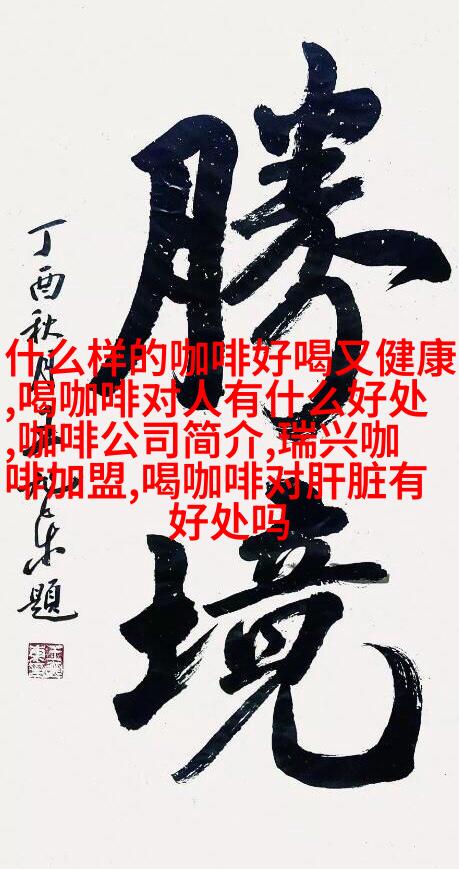 勝境
丁酉秋月
题
什么样的咖啡好喝又健康
,喝咖啡对人有什么好处
,咖啡公司简介,瑞兴咖
啡加盟,喝咖啡对肝脏有
好处吗